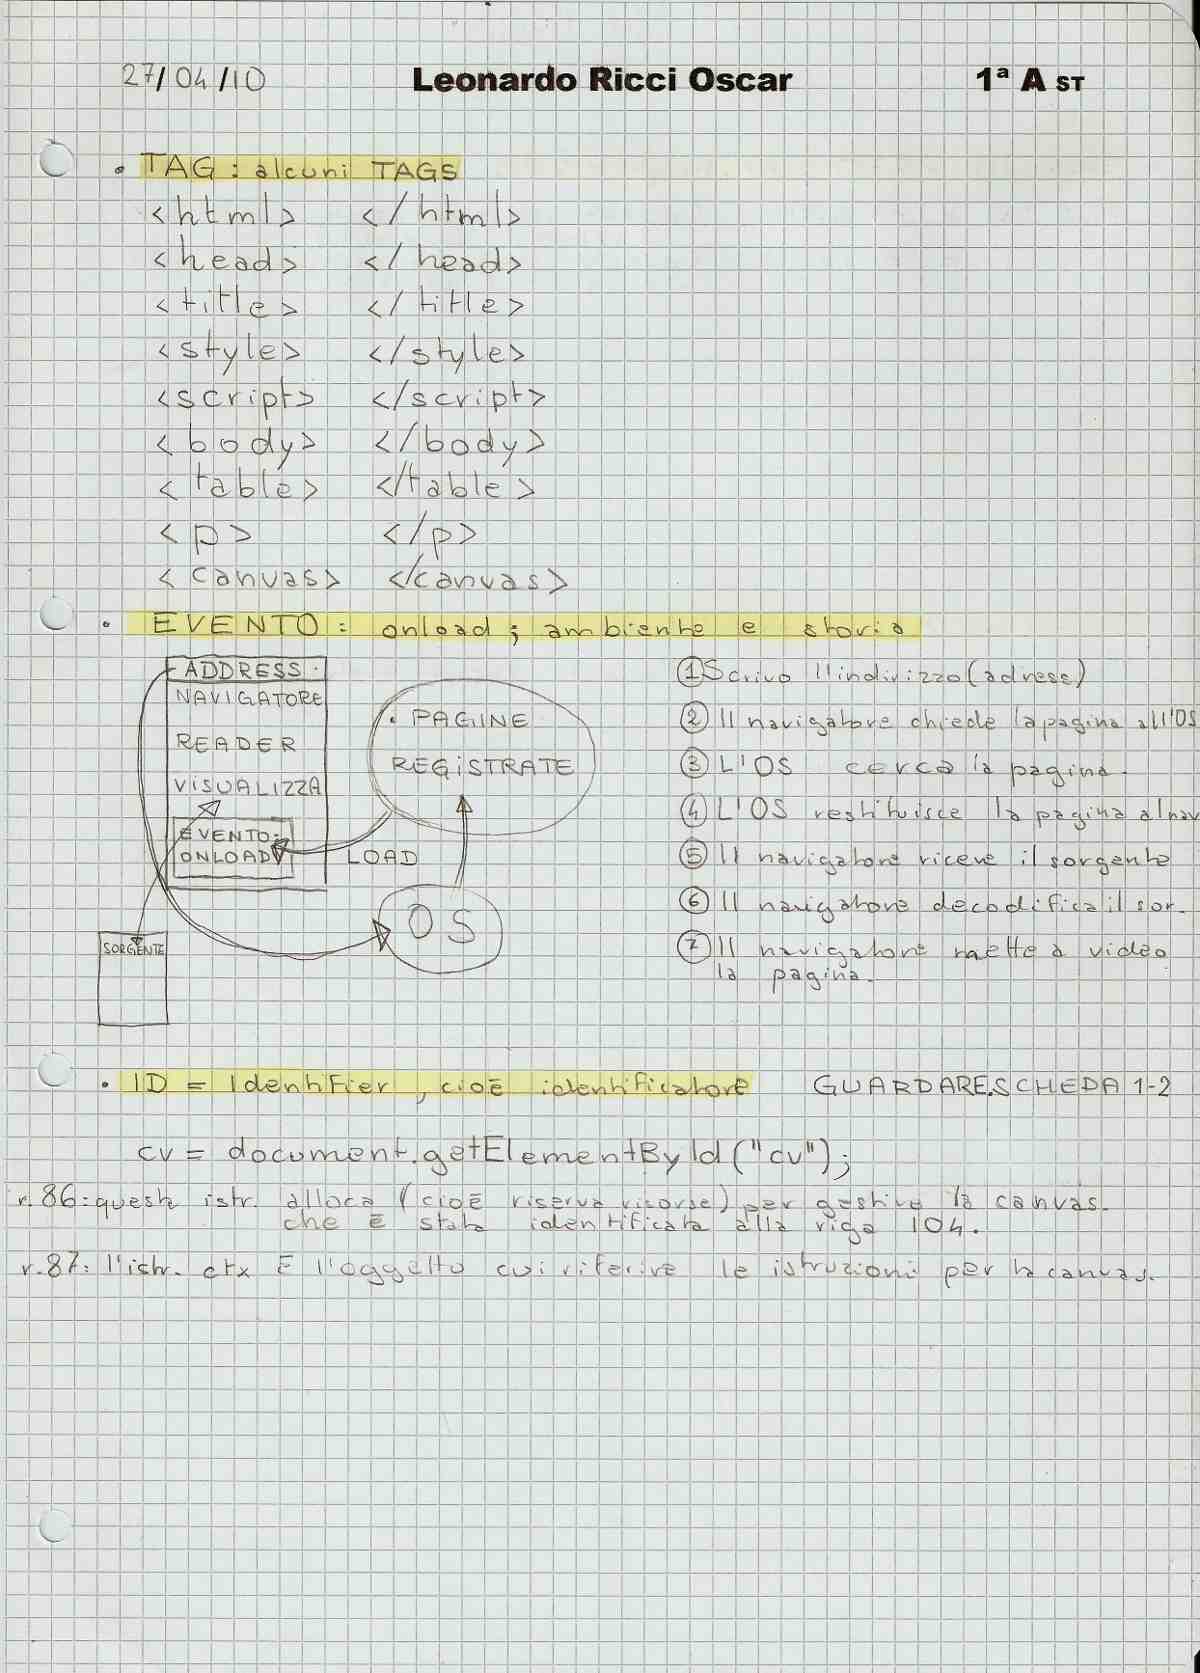 27/04/10 Leonardo Ricci Oscar 1ª A ST
• TAG: alcuni TAGS
<html> </html>
<head> </head>
<title> </title>
<style> </style>
<script> </script>
<body> </body>
<table> </table>
<p> </p>
<canvas> </canvas>
• EVENTO: onload; ambiente e storia
ADDRESS
NAVIGATORE
READER
VISUALIZZA
EVENTO:
ONLOAD
SORGENTE
• PAGINE
REGISTRATE
LOAD
OS
① Scrivo l'indirizzo (adress)
② Il navigatore chiede la pagina all'OS
③ L'OS cerca la pagina.
④ L'OS restituisce la pagina al nav
⑤ Il navigatore riceve il sorgente
⑥ Il navigatore decodifica il sor.
⑦ Il navigatore mette a video
la pagina.
• ID = Identifier, cioè identificatore GUARDARE SCHEDA 1-2
cv = document.getElementById("cv");
r.86: questa istr. alloca (cioè riserva risorse) per gestire la canvas.
che è stata identificata alla riga 104.
r.87: l'istr. ctx è l'oggetto cui riferire le istruzioni per la canvas.